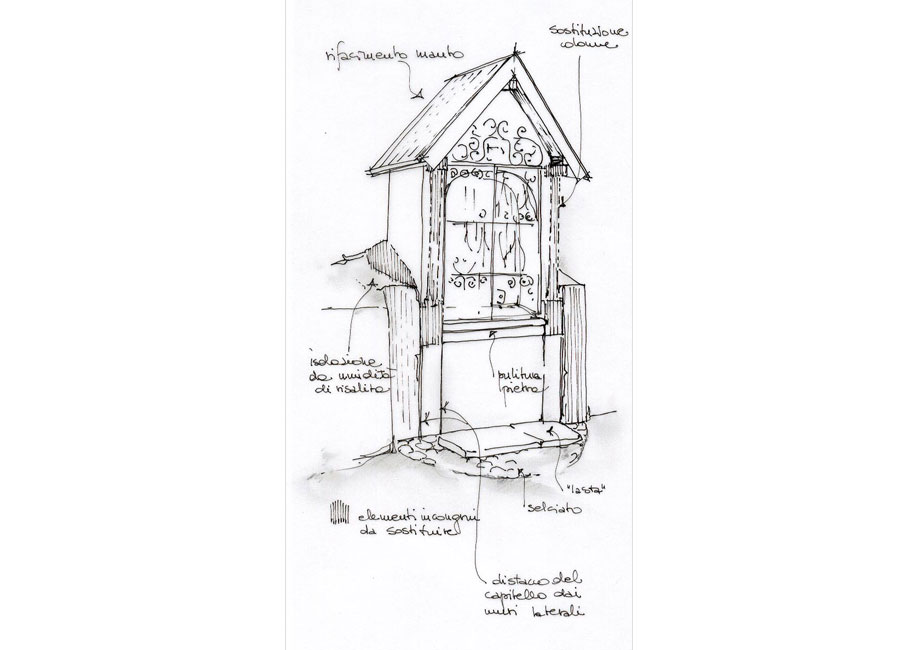 sostituzione
colonne
rifacimento manto
isolazione
da umidità
di risalita
pulitura
pietra
"lasta"
selciato
elementi incongrui
da sostituire
distacco del
capitello dai
muri laterali